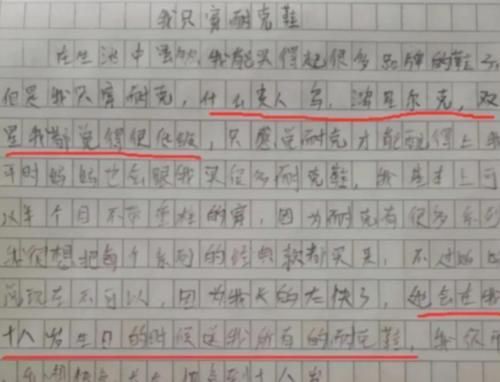 我只穿耐克鞋
在生活中虽然我能买得起很多品牌的鞋子
但是我只穿耐克，什么
是我都觉得很低级，只感觉耐克才能配得上我
平时妈妈也会跟我买很多耐克鞋，我基本上可
以半个月不带重样的穿，因为耐克有很多系列
我很想把每个系列的经典款都买来，不过妈妈
说现在不可以，因为我长的太快了，她会在我
十八岁生日的时候送我所有的耐克鞋，我